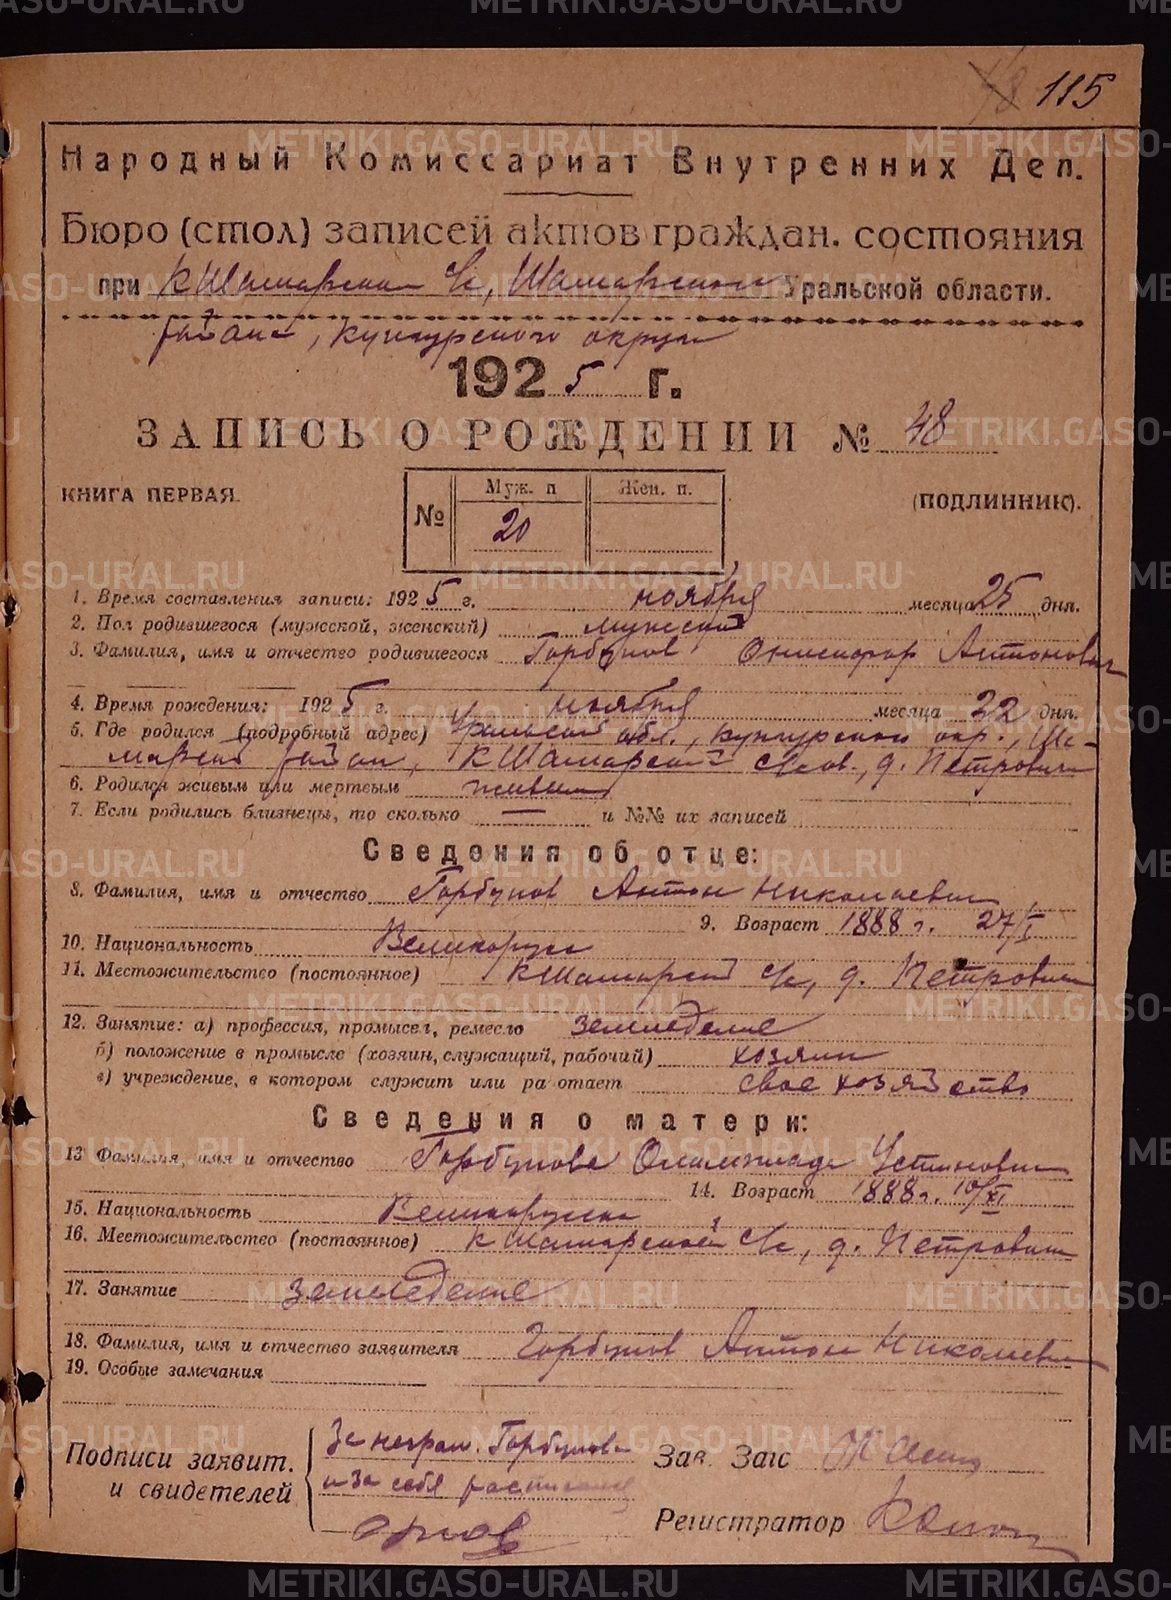 115
Народный Комиссариат Внутренних Дел.
Бюро (стол) записей актов граждан. состояния
при К Шамарском с/с, Шамарского Уральской области.
района, Кунгурского округа
1925 г.
ЗАПИСЬ О РОЖДЕНИИ № 48
КНИГА ПЕРВАЯ.
(ПОДЛИННИК).
№ Муж. п Жен. п.
20
1. Время составления записи: 1925 г. ноября месяца 25 дня.
2. Пол родившегося (мужской, женский) мужской
3. Фамилия, имя и отчество родившегося Горбунов Онисифор Антонович
4. Время рождения: 1925 г. ноября месяца 22 дня.
5. Где родился (подробный адрес) Уральской обл., Кунгурского окр., Ша-
марский район, К Шамарский с/сов., д. Петровичи
6. Родился живым или мертвым живым
7. Если родились близнецы, то сколько — и №№ их записей
Сведения об отце:
8. Фамилия, имя и отчество Горбунов Антон Николаевич
9. Возраст 1888 г. 27/I
10. Национальность Великорус
11. Местожительство (постоянное) К Шамарский с/с, д. Петровичи
12. Занятие: а) профессия, промысел, ремесло земледелие
б) положение в промысле (хозяин, служащий, рабочий) хозяин
в) учреждение, в котором служит или ра отает свое хозяйство
Сведения о матери:
13 Фамилия, имя и отчество Горбунова Олимпиада Устиновна
14. Возраст 1888 г. 10/XI
15. Национальность Великорусска
16. Местожительство (постоянное) К Шамарской с/с, д. Петровичи
17. Занятие земледелие
18. Фамилия, имя и отчество заявителя Горбунов Антон Николаевич
19. Особые замечания
Подписи заявит.
и свидетелей
За неграм. Горбунова
и за себя расписался
Зав. Загс
Регистратор
METRIKI.GASO-URAL.RU